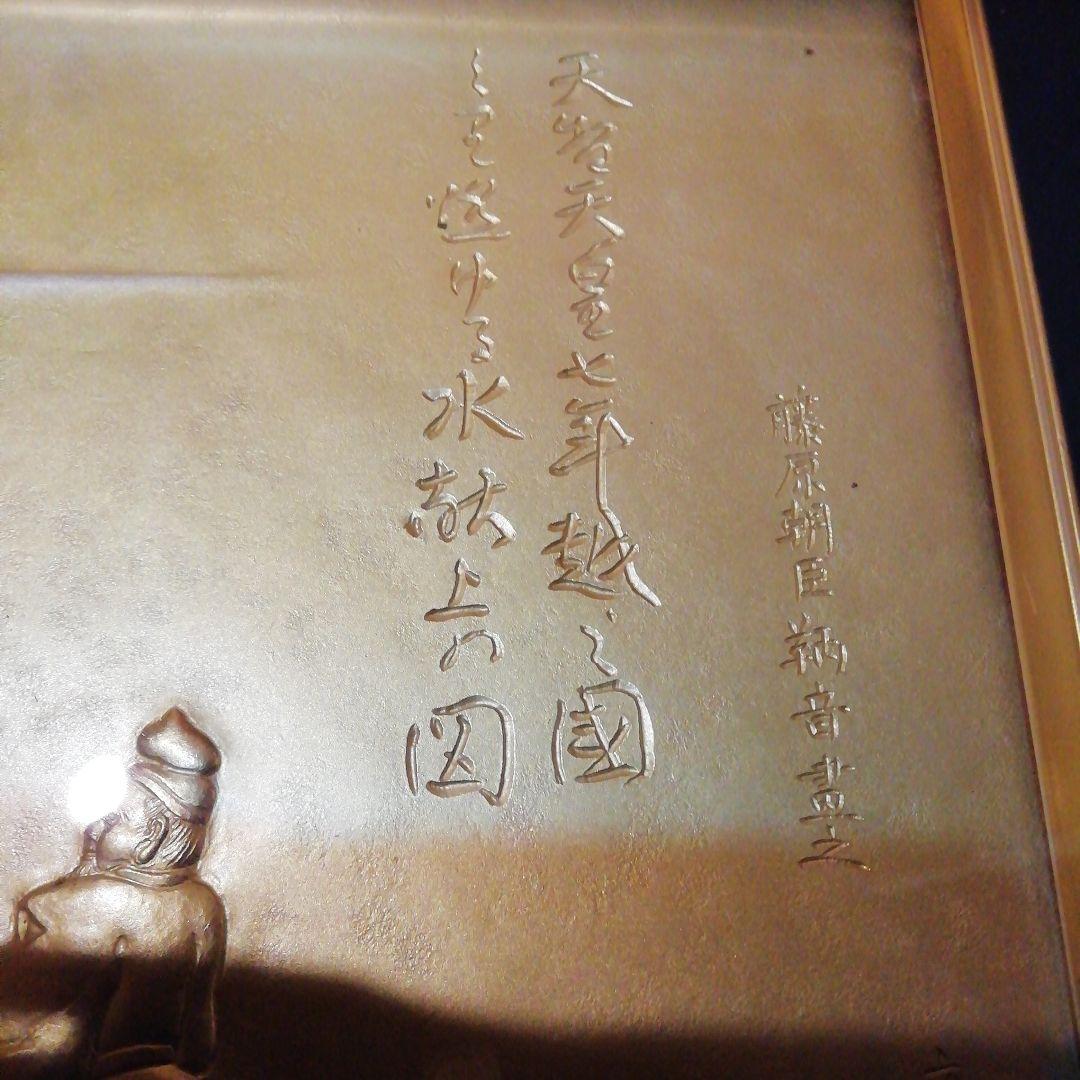 藤原朝臣鞆音畫之
天智天皇七年越之國
より燃ゆる水献上の図